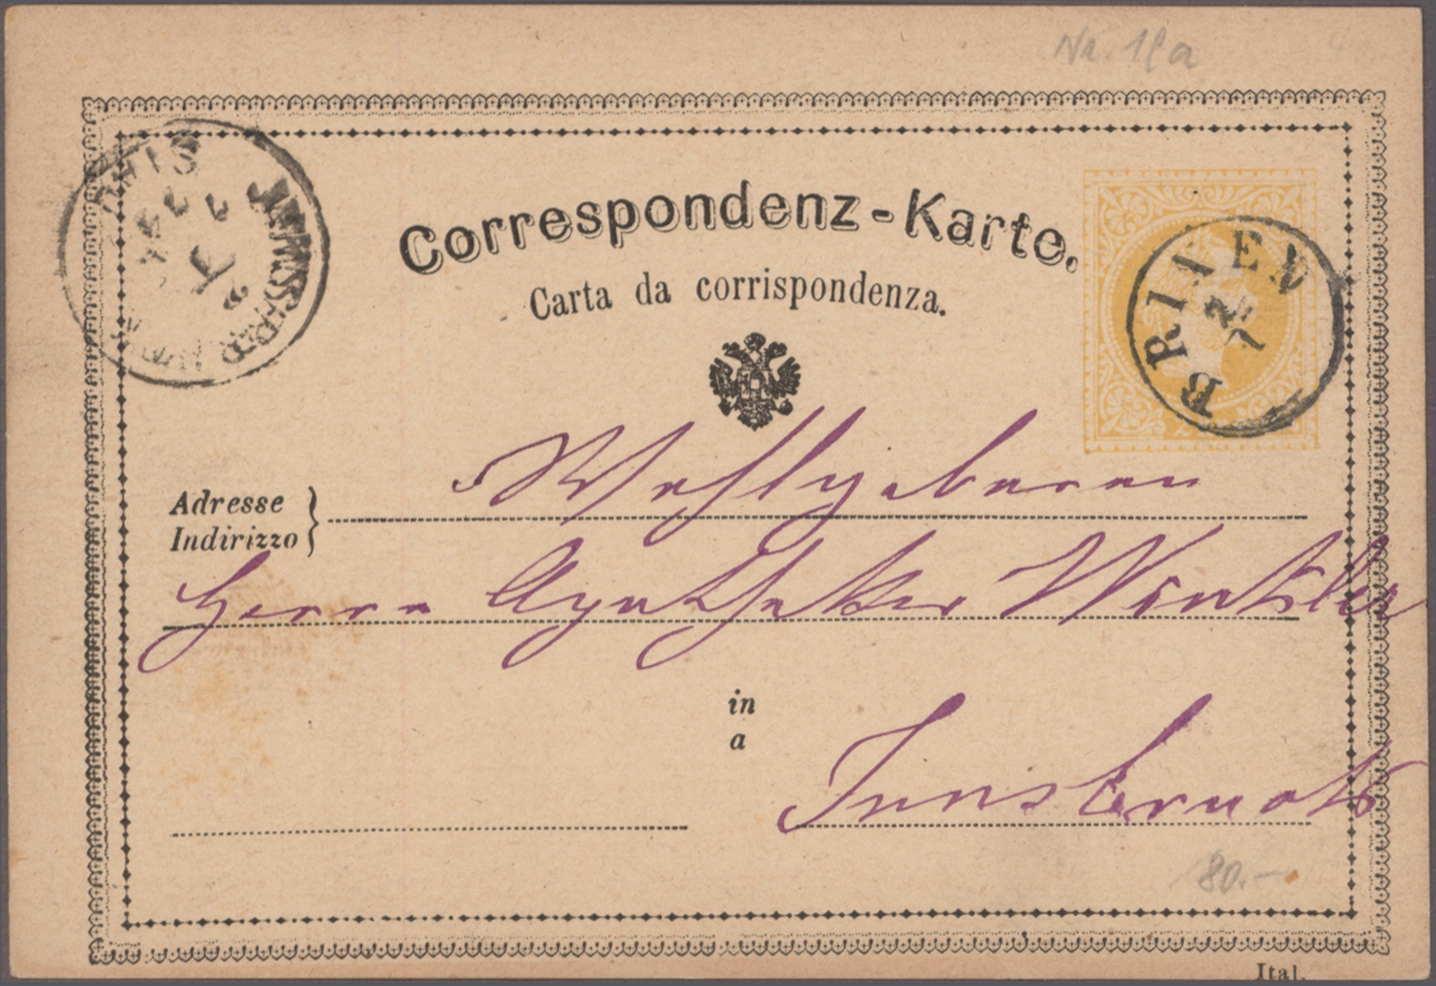 Nr. 18a
Correspondenz-Karte.
Carta da corrispondenza.
BRIXEN
Adresse
Indirizzo
Wohlgeboren
Herrn Apotheker Winkler
in
a
Innsbruck
80.–
Ital.